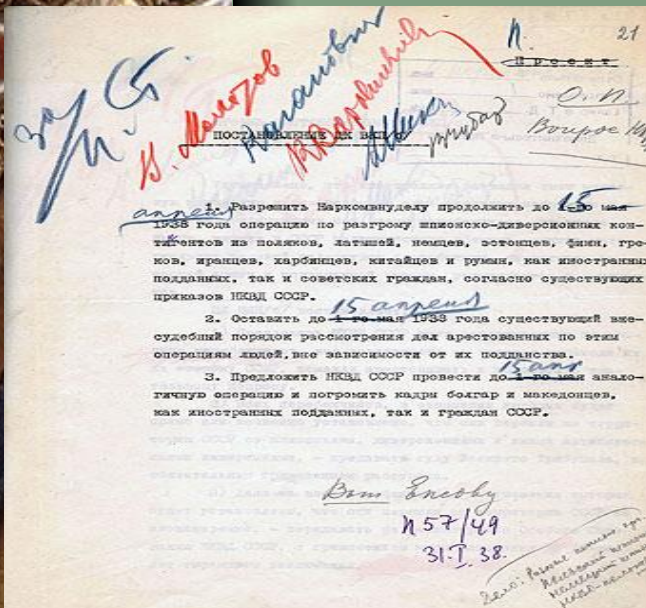 П. 21
Проект
за И. Ст.
В. Молотов
Каганович
К Ворошилов
А Микоян
О.П.
Вопрос НКВД
ПОСТАНОВЛЕНИЕ ЦК ВКП/б/
1. Разрешить Наркомвнуделу продолжить до 15 1-го мая
апреля
1938 года операцию по разгрому шпионско-диверсионных кон-
тингентов из поляков, латышей, немцев, эстонцев, финн, гре-
ков, иранцев, харбинцев, китайцев и румын, как иностранных
подданных, так и советских граждан, согласно существующих
приказов НКВД СССР.
15 апреля
2. Оставить до 1-го мая 1938 года существующий вне-
судебный порядок рассмотрения дел арестованных по этим
операциям людей, вне зависимости от их подданства.
15 апр
3. Предложить НКВД СССР провести до 1-го мая анало-
гичную операцию и погромить кадры болгар и македонцев,
как иностранных подданных, так и граждан СССР.
Ежову
П 57/49
31.I.38.